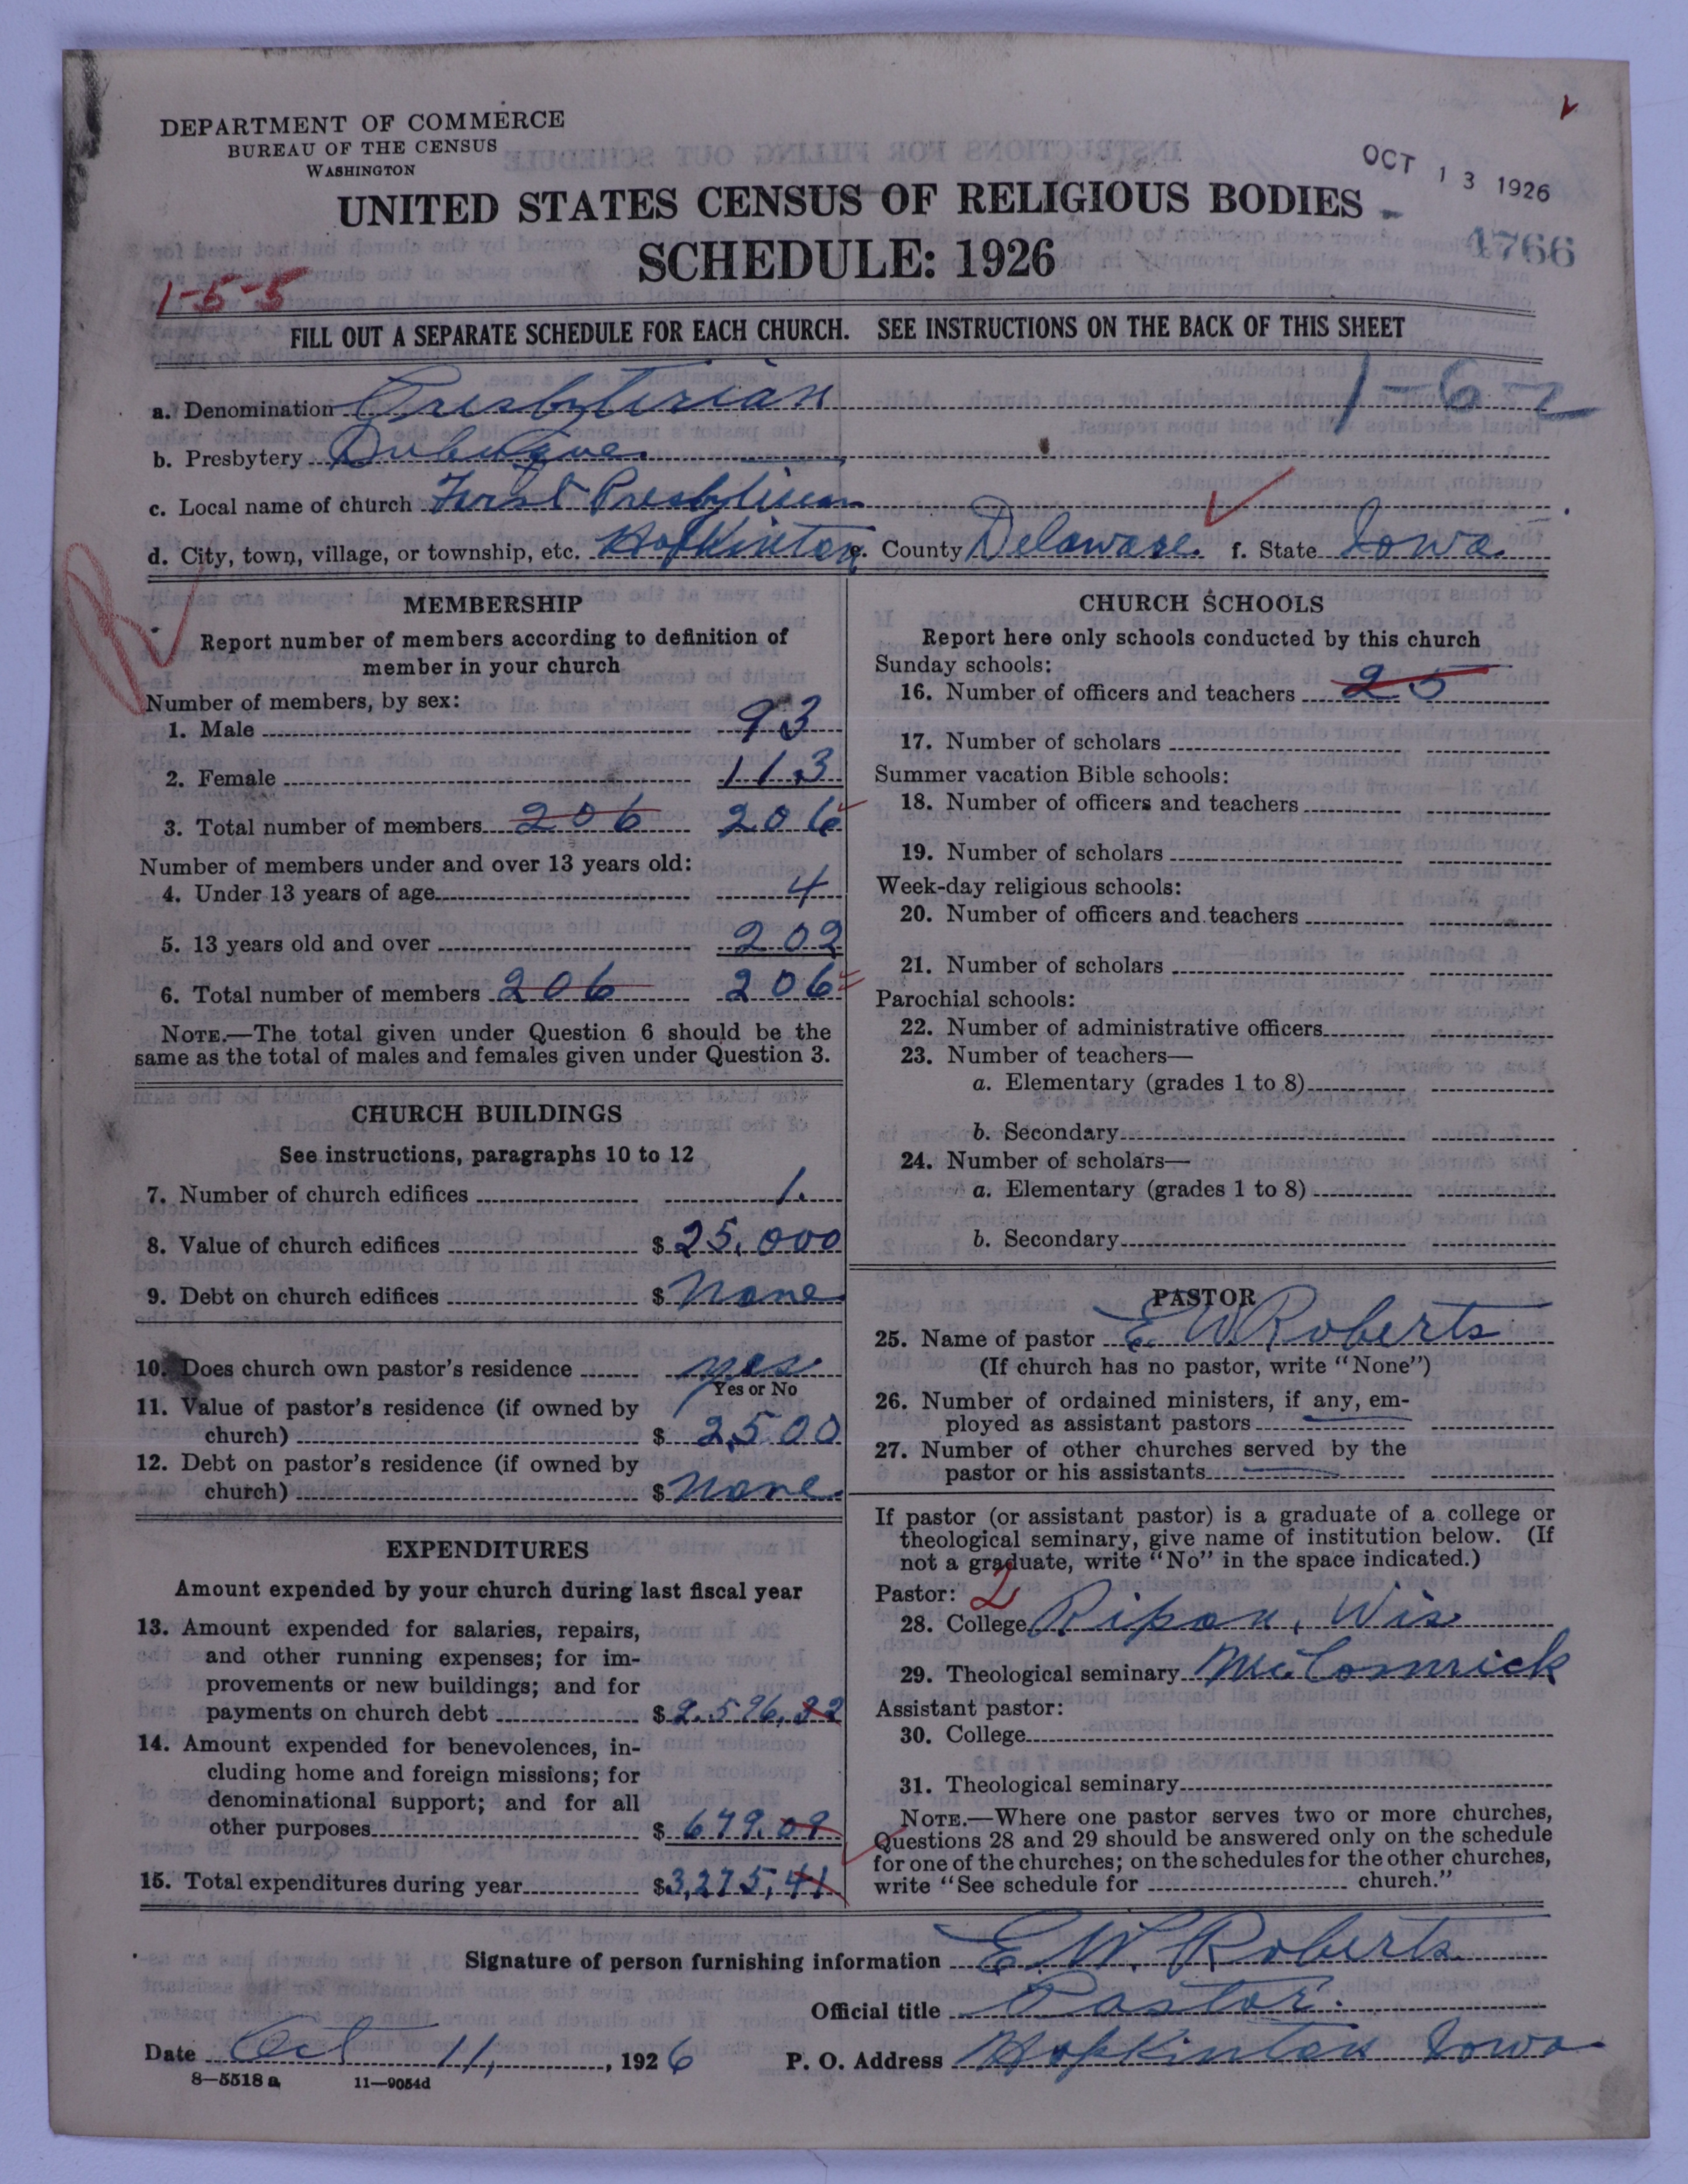 DEPARTMENT OF COMMERCE
BUREAU OF THE CENSUS
WASHINGTON
OCT 13 1926
UNITED STATES CENSUS OF RELIGIOUS BODIES
4766
SCHEDULE: 1926
1-5-5
FILL OUT A SEPARATE SCHEDULE FOR EACH CHURCH. SEE INSTRUCTIONS ON THE BACK OF THIS SHEET
1-6-2
a. Denomination Presbyterian
b. Presbytery Dubuque
c. Local name of church First Presbyterian
d. City, town, village, or township, etc. Hopkinton e. County Delaware f. State Iowa
MEMBERSHIP
Report number of members according to definition of
member in your church
Number of members, by sex:
1. Male 93
2. Female 113
3. Total number of members 206 206
Number of members under and over 13 years old:
4. Under 13 years of age 4
5. 13 years old and over 202
6. Total number of members 206 206
NOTE.—The total given under Question 6 should be the
same as the total of males and females given under Question 3.
CHURCH BUILDINGS
See instructions, paragraphs 10 to 12
7. Number of church edifices 1.
8. Value of church edifices $ 25,000
9. Debt on church edifices $ None
10. Does church own pastor's residence yes
Yes or No
11. Value of pastor's residence (if owned by
church) $ 2500
12. Debt on pastor's residence (if owned by
church) $ None
EXPENDITURES
Amount expended by your church during last fiscal year
13. Amount expended for salaries, repairs,
and other running expenses; for im-
provements or new buildings; and for
payments on church debt $ 2.596,32
14. Amount expended for benevolences, in-
cluding home and foreign missions; for
denominational support; and for all
other purposes $ 679.09
15. Total expenditures during year $3,275,41
CHURCH SCHOOLS
Report here only schools conducted by this church
Sunday schools:
16. Number of officers and teachers 25
17. Number of scholars
Summer vacation Bible schools:
18. Number of officers and teachers
19. Number of scholars
Week-day religious schools:
20. Number of officers and teachers
21. Number of scholars
Parochial schools:
22. Number of administrative officers
23. Number of teachers—
a. Elementary (grades 1 to 8)
b. Secondary
24. Number of scholars—
a. Elementary (grades 1 to 8)
b. Secondary
PASTOR
25. Name of pastor E W Roberts
(If church has no pastor, write "None")
26. Number of ordained ministers, if any, em-
ployed as assistant pastors
27. Number of other churches served by the
pastor or his assistants
If pastor (or assistant pastor) is a graduate of a college or
theological seminary, give name of institution below. (If
not a graduate, write "No" in the space indicated.)
Pastor: 2
28. College Ripon, Wis
29. Theological seminary McCormick
Assistant pastor:
30. College
31. Theological seminary
NOTE.—Where one pastor serves two or more churches,
Questions 28 and 29 should be answered only on the schedule
for one of the churches; on the schedules for the other churches,
write "See schedule for church."
Signature of person furnishing information E. W. Roberts
Official title Pastor.
Date Oct 11, 1926 P. O. Address Hopkinton Iowa
8-5518 a 11-9054d